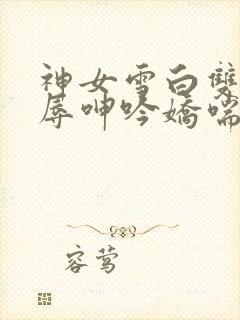 神女雪白雙
辱呻吟嬌喘
容莺